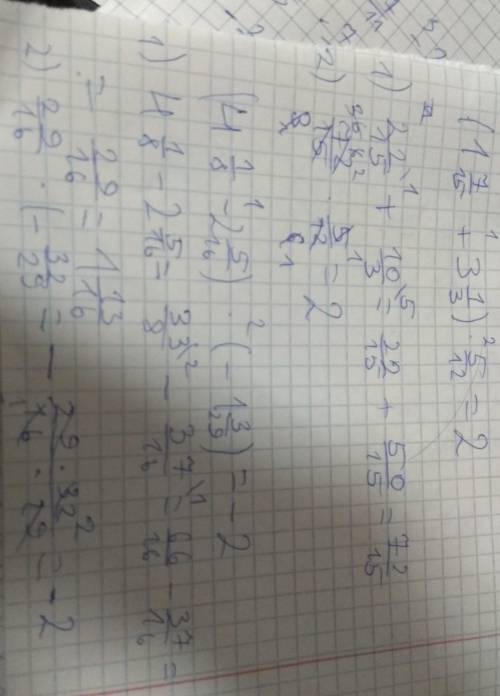 (1 7/15 + 3 1/3) · 5/12 = 2
1) 22/15 + 10/3 = 22/15 + 50/15 = 72/15
2) 72/15 · 5/12 = 2
(4 1/8 - 2 5/16) · (-1 3/29) = -2
1) 4 1/8 - 2 5/16 = 33/8 - 37/16 = 66/16 - 37/16 =
= 29/16 = 1 13/16
2) 29/16 · (-32/29) = - 29·32/16·29 = -2